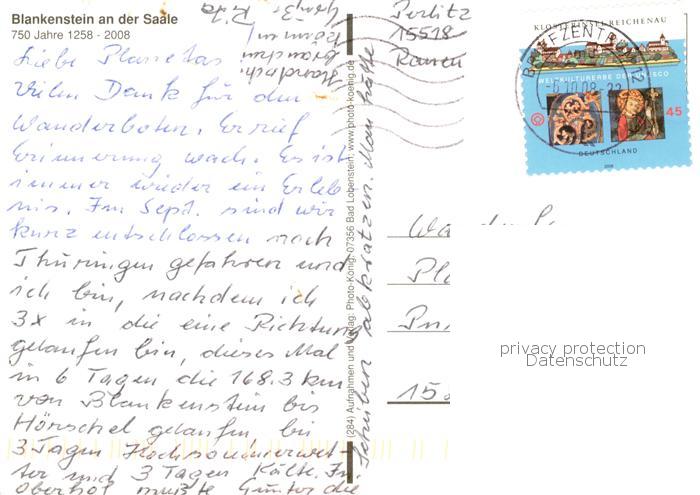 Blankenstein an der Saale
750 Jahre 1258 - 2008
Liebe Planetas
Vielen Dank für den
Wanderboten. Er rief
Erinnerung wach. Es ist
immer wieder ein Erleb
nis. Im Sept. sind wir
kurz entschlossen nach
Thüringen gefahren und
ich bin, nachdem ich
3x in die eine Richtung
gelaufen bin, dieses Mal
in 6 Tagen die 168.3 km
von Blankenstein bis
Hörschel gelaufen bei
3 Tagen Hochsommerwet-
ter und 3 Tagen Kälte. In
Oberhof mußte Günter die
Scheiben abkratzen. Man hatte
(284) Aufnahmen und Verlag: Photo-König, 07356 Bad Lobenstein, www.photo-koenig.de
15518
KLOSTERINSEL REICHENAU
WELTKULTURERBE DER UNESCO
45
DEUTSCHLAND
2008
BRIEFZENTRUM
Pl
158
privacy protection
Datenschutz